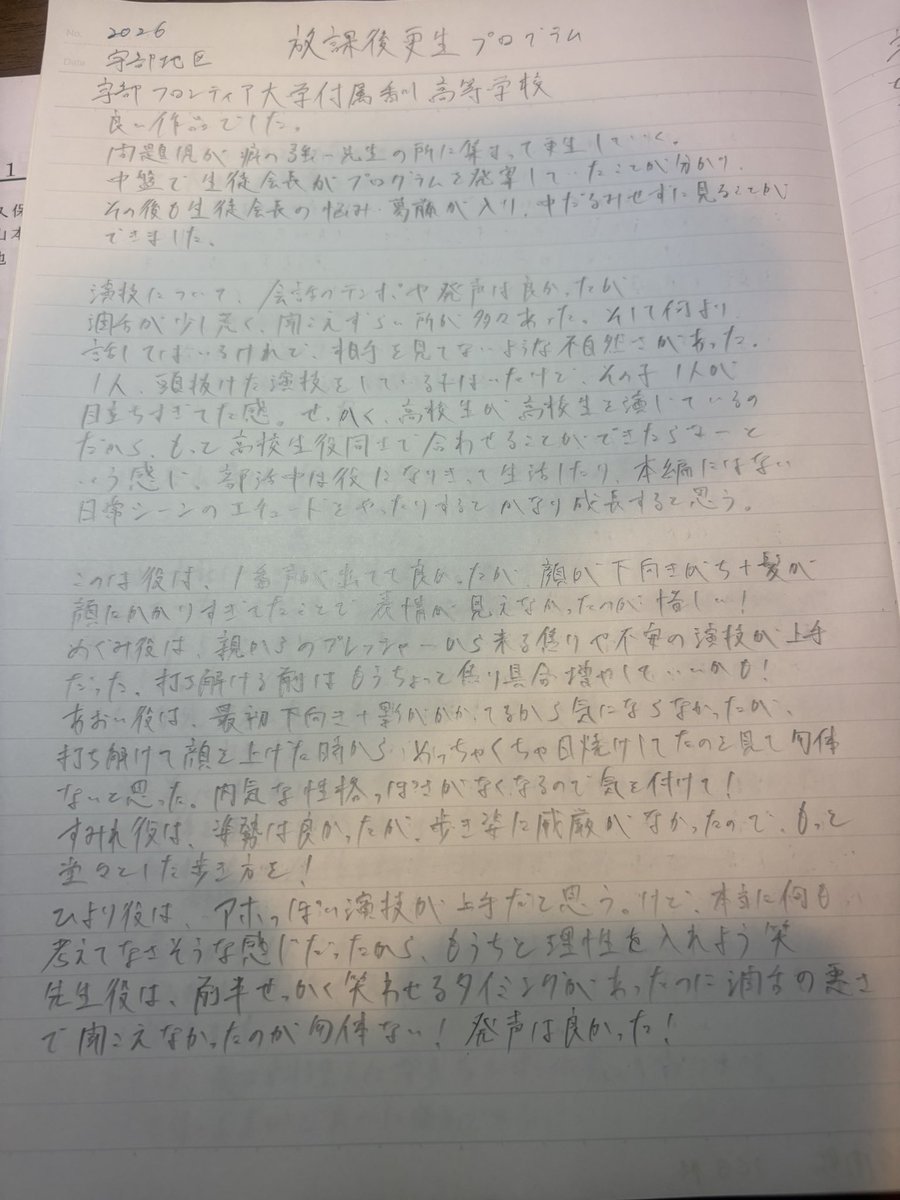 No. 2026
放課後更生プログラム
Date 宇部地区
宇部フロンティア大学付属香川高等学校
良い作品でした。
問題児が癖の強い先生の所に集まって更生していく。
中盤で生徒会長がプログラムを発案していたことが分かり、
その後も生徒会長の悩み・葛藤が入り、中だるみせずに見ることが
できました。
演技について、会話のテンポや発声は良かったが
滑舌が少し悪く、聞こえずらい所が多々あった。そして何より
話してはいるけれど、相手を見てないような不自然さがあった。
1人、頭抜けた演技をしている子はいたけど、その子1人が
目立ちすぎてた感。せっかく、高校生が高校生を演じているの
だから、もっと高校生役同士で合わせることができたらなーと
いう感じ、部活中は役になりきって生活したり、本編にはない
日常シーンのエチュードをやったりするとかなり成長すると思う。
このは役は、1番 が出てて良かったが、顔が下向きがち+髪が
顔にかかりすぎてたことで表情が見えなかったのが惜しい!
めぐみ役は、親からのプレッシャーから来る焦りや不安の演技が上手
だった。打ち解ける前はもうちょって焦り具合増やしていいかも!
あおい役は、最初下向き+影がかかってるから気にならなかったが、
打ち解けて顔を上げた時から、めっちゃくちゃ日焼けしてたのを見て勿体
ないと思った。内気な性格っぽさがなくなるので気を付けて!
すみれ役は、姿勢は良かったが、歩き姿に威厳がなかったので、もっと
堂々とした歩き方を!
ひより役は、アホっぽい演技が上手だと思う。けど、本当に何も
考えてなさそうな感じだったから、もうちと理性を入れよう笑
先生役は、前半せっかく笑わせるタイミングがあったのに滑舌の悪さ
で聞こえなかったのが勿体ない!発声は良かった!
1
久保
山本
也